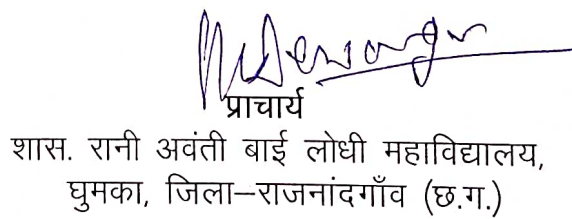 प्राचार्य
शास. रानी अवंती बाई लोधी महाविद्यालय,
घुमका, जिला–राजनांदगाँव (छ.ग.)